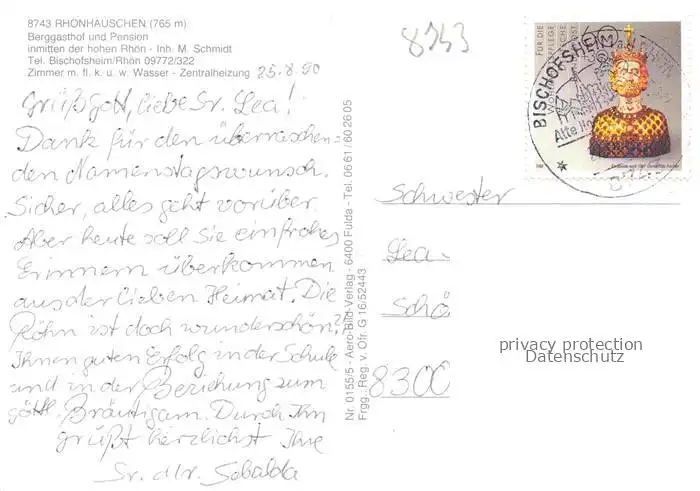 8743 RHÖNHÄUSCHEN (765 m)
Berggasthof und Pension
inmitten der hohen Rhön - Inh. M. Schmidt
Tel. Bischofsheim/Rhön 09772/322
Zimmer m. fl. k. u. w. Wasser - Zentralheizung
25.8.90
Grüßgott, liebe Sr. Lea!
Dank für den überraschen-
den Namenstagswunsch.
Sicher, alles geht vorüber.
Aber heute soll Sie ein frohes
Erinnern überkommen
aus der lieben Heimat. Die
Röhn ist doch wunderschön?
Ihnen guten Erfolg in der Schule
und in der Beziehung zum
göttl. Bräutigam. Durch Ihn
grüßt herzlichst Ihre
Sr. Sebalda
Nr. 0155/5 - Aero-Bild-Verlag - 6400 Fulda - Tel. 06 61 / 60 26 05
Frgg.: Reg. v. Ofr. G 16/52443
8743
FÜR DIE
BISCHOFSHEIM
Alte
Schwester
Lea
Schö
8300
privacy protection
Datenschutz